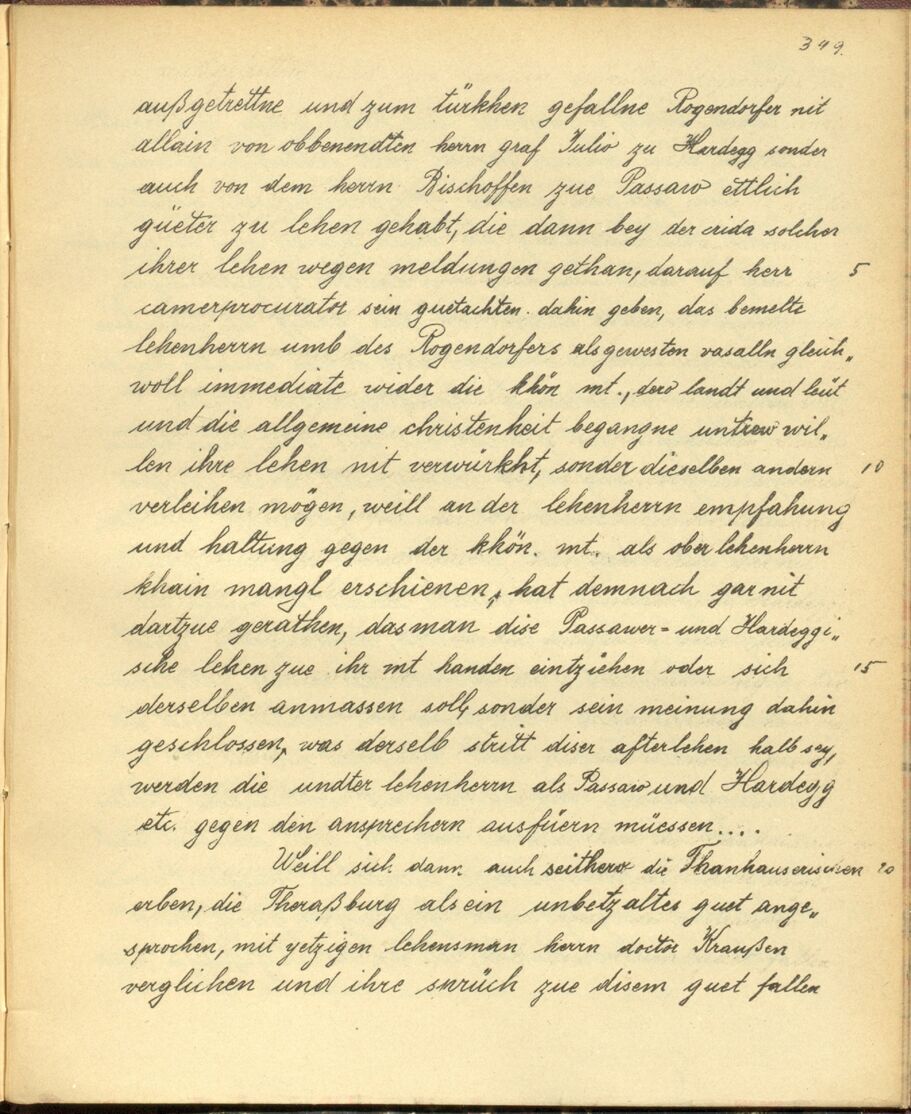 349.
außgetrettne und zum türkhen gefallne Rogendorfer nit
allain von obbenendten herrn graf Julio zu Hardegg sonder
auch von dem herrn Bischoffen zue Passaw ettlich
güeter zu lehen gehabt, die dann bey der crida solcher
ihrer lehen wegen meldungen gethan, darauf herr 5
camerprocurator sein guetachten dahin geben, das bemelte
lehenherrn umb des Rogendorfers als gewesten vasalln gleich„
woll immediate wider die khön mt., dero landt und leüt
und die allgemeine christenheit begangne untrew wil„
len ihre lehen nit verwürkht, sonder dieselben andern 10
verleihen mögen, weill an der lehenherrn empfahung
und haltung gegen der khön. mt. als ober lehenherrn
khain mangl erschienen, hat demnach gar nit
dartzue gerathen, das man dise Passawer= und Hardeggi„
sche lehen zue ihr mt handen eintziehen oder sich 15
derselben anmassen soll, sonder sein meinung dahin
geschlossen, was derselb stritt diser afterlehen halb sey,
werden die undter lehenherrn als Passaw und Hardegg
etc. gegen den ansprechern ausfüern müessen....
Weill sich dann auch seithero die Thanhauserischen 20
erben, die Theraßburg als ein unbetzaltes guet ange„
sprochen, mit yetzigen lehensman herrn doctor Kraußen
verglichen und ihre sprüch zue disem guet fallen